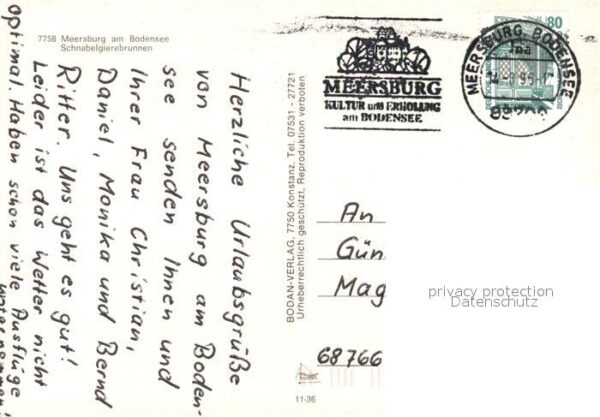 7758 Meersburg am Bodensee
Schnabelgierebrunnen
Herzliche Urlaubsgrüße
von Meersburg am Boden-
see senden Ihnen und
Ihrer Frau Christian,
Daniel, Monika und Bernd
Ritter. Uns geht es gut!
Leider ist das Wetter nicht
optimal. Haben schon viele Ausflüge
unternommen!
BODAN-VERLAG, 7750 Konstanz, Tel. 07531 - 27721
Urheberrechtlich geschützt, Reproduktion verboten
11-36
MEERSBURG
KULTUR und ERHOLUNG
am BODENSEE
MEERSBURG, BODENSEE
80
An
Gün
Mag
68766
privacy protection
Datenschutz